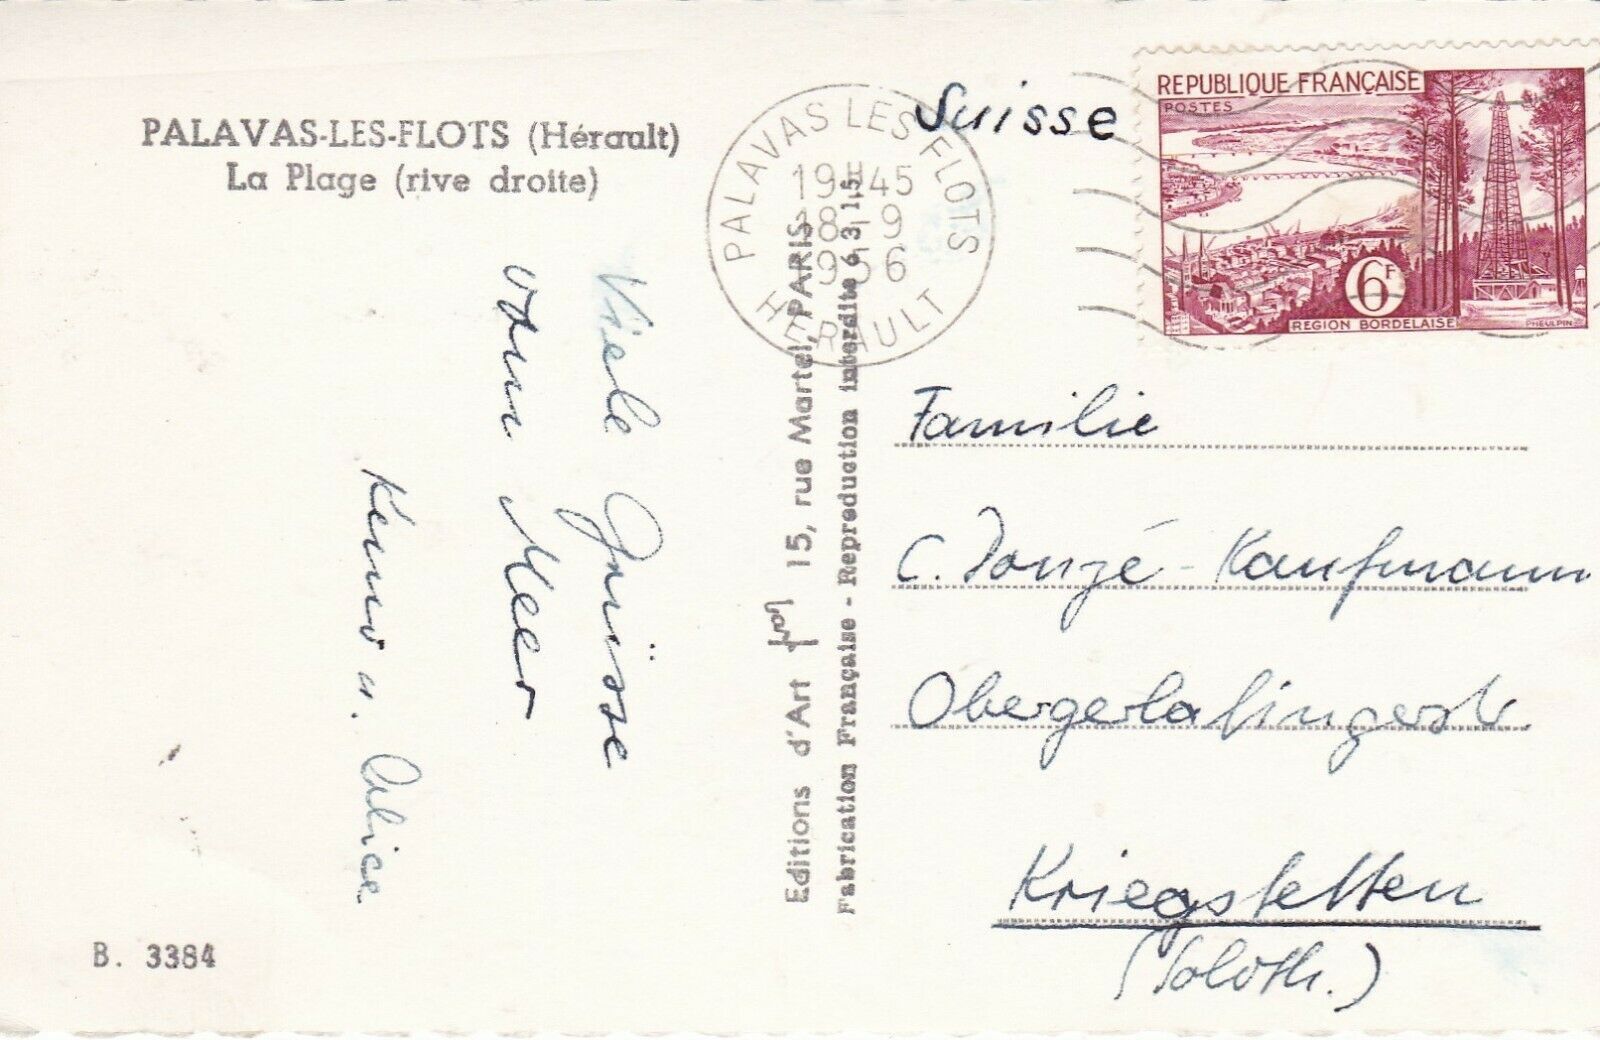 PALAVAS-LES-FLOTS (Hérault)
La Plage (rive droite)
Viele Grüsse
vom Meer
u. Alice
B. 3384
Editions d'Art 15, rue Martel, PARIS
Fabrication Française - Reproduction interdite 6.3.15
PALAVAS LES FLOTS
19H45
18-9
1956
HERAULT
Suisse
REPUBLIQUE FRANÇAISE
POSTES
6F
REGION BORDELAISE
PHEULPIN
Familie
C. Donzé-Kaufmann
Obergerlafingerstr.
Kriegstetten
(Soloth.)